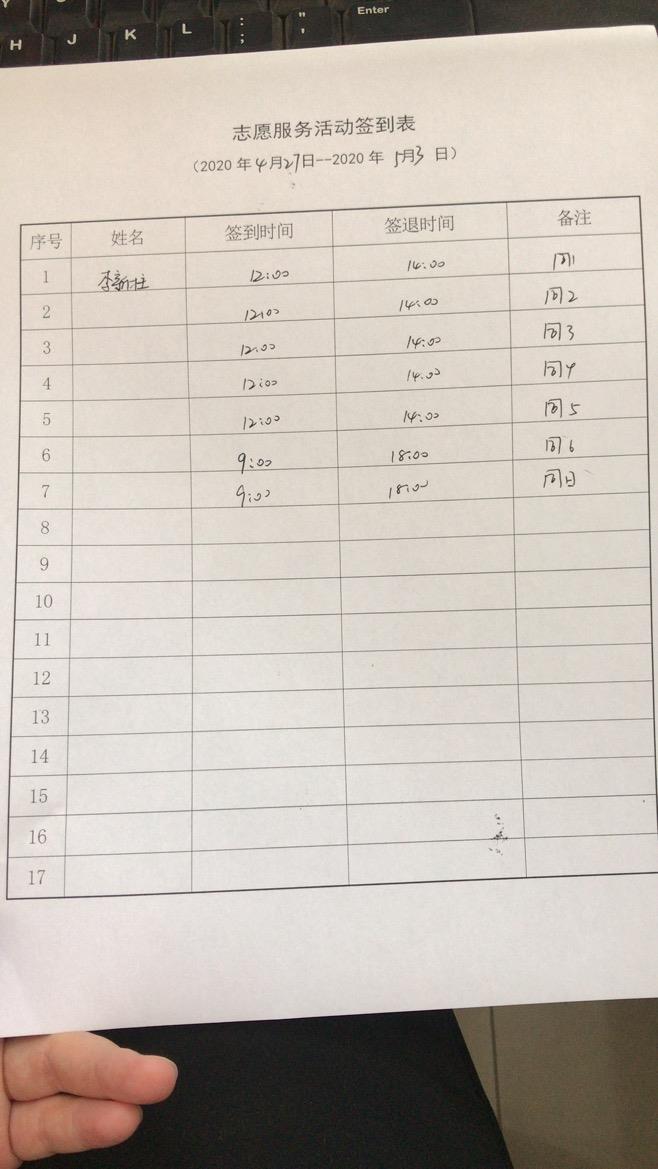 Y
Enter
H J K L : ; " '
志愿服务活动签到表
(2020年4月27日--2020年 5月3日)
序号 姓名 签到时间 签退时间 备注
1 李新柱 12:00 14:00 周1
2 12:00 14:00 周2
3 12:00 14:00 周3
4 12:00 14:00 周4
5 12:00 14:00 周5
6 9:00 18:00 周6
7 9:00 18:00 周日
8
9
10
11
12
13
14
15
16
17